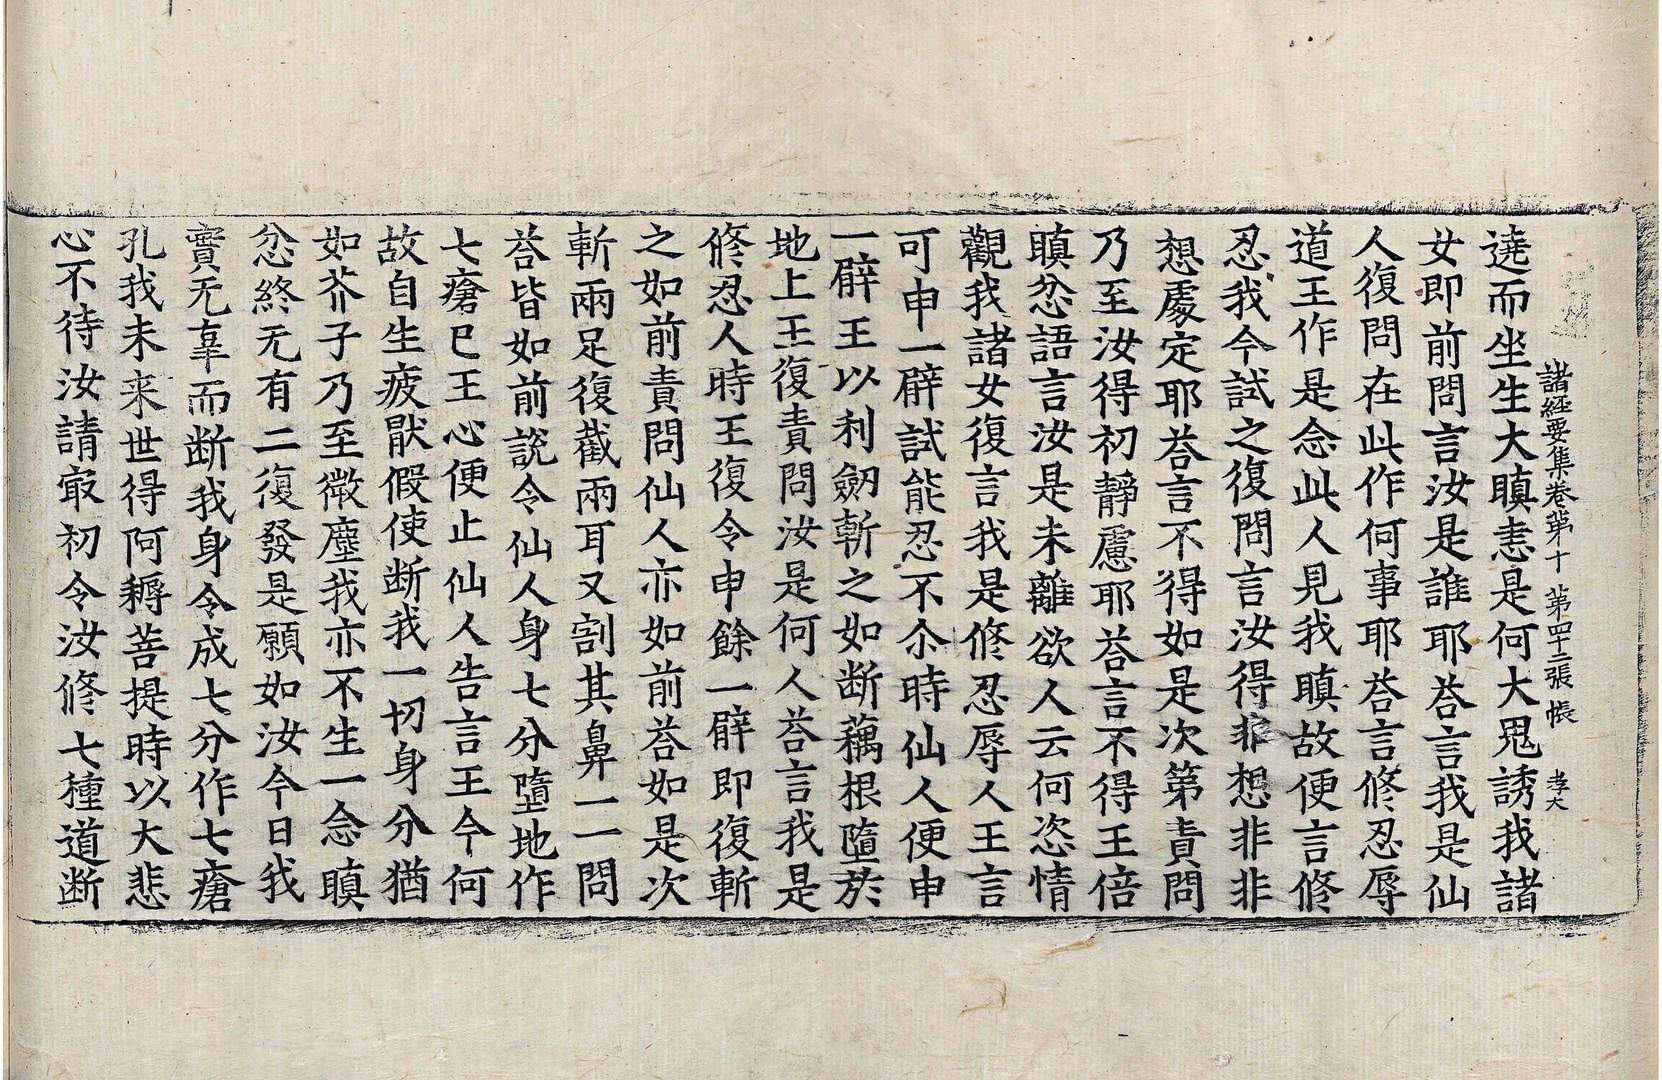 諸經要集卷第十　第四十二張　帳　孝大
遶而坐生大瞋恚是何大鬼誘我諸
女即前問言汝是誰耶荅言我是仙
人復問在此作何事耶荅言修忍辱
道王作是念此人見我瞋故便言修
忍我今試之復問言汝得非想非非
想處定耶荅言不得如是次第責問
乃至汝得初靜慮耶荅言不得王倍
瞋忿語言汝是未離欲人云何恣情
觀我諸女復言我是修忍辱人王言
可申一臂試能忍不尒時仙人便申
一臂王以利劒斬之如断藕根墮於
地上王復責問汝是何人荅言我是
修忍人時王復令申餘一臂即復斬
之如前責問仙人亦如前荅如是次
斬兩足復截兩耳又割其鼻一一問
荅皆如前說令仙人身七分墮地作
七瘡已王心便止仙人告言王今何
故自生疲猒假使断我一切身分猶
如芥子乃至微塵我亦不生一念瞋
忿終无有二復發是願如汝今日我
實无辜而断我身令成七分作七瘡
孔我未来世得阿耨菩提時以大悲
心不待汝請㝡初令汝修七種道断